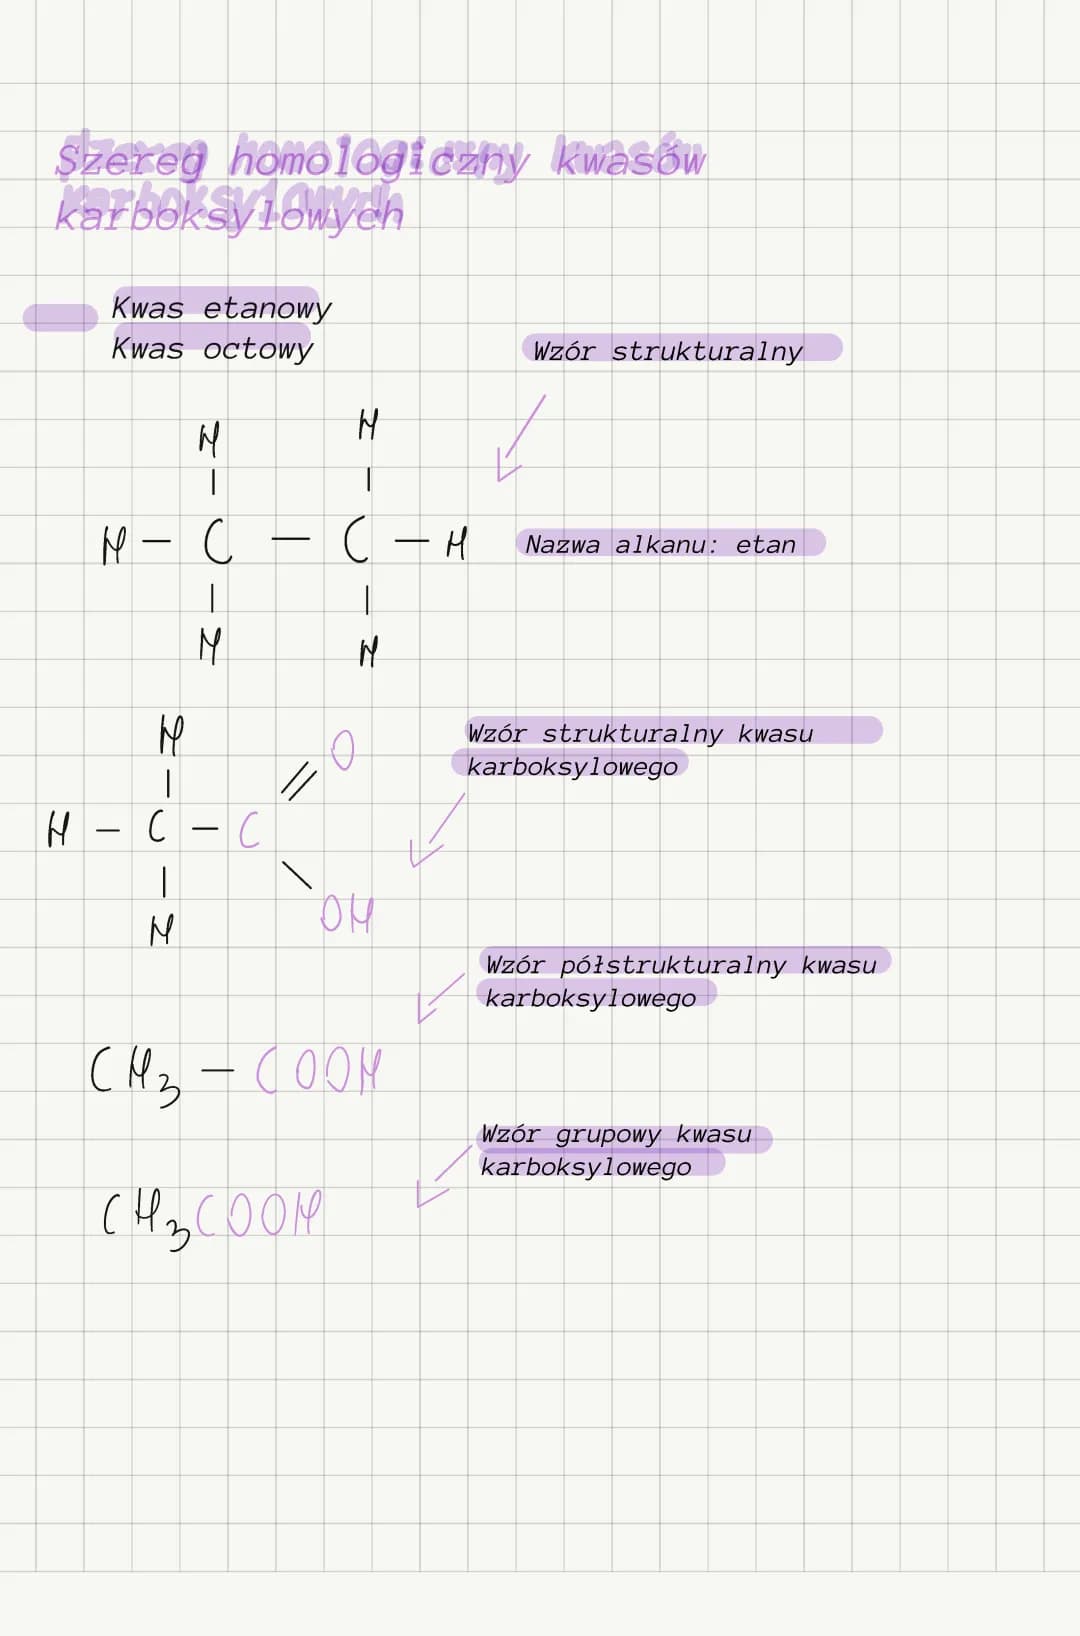 Szereg homologiczny kwasów
karboksylowych
Kwas etanowy
Kwas octowy
Wzór strukturalny
H H
| |
H — C — C — H
Nazwa alkanu: etan
| |
H H
H
O
Wzór strukturalny kwasu
karboksylowego
|
//
H — C — C
|
\
OH
H
Wzór półstrukturalny kwasu
karboksylowego
CH₃ — COOH
Wzór grupowy kwasu
karboksylowego
CH₃COOH